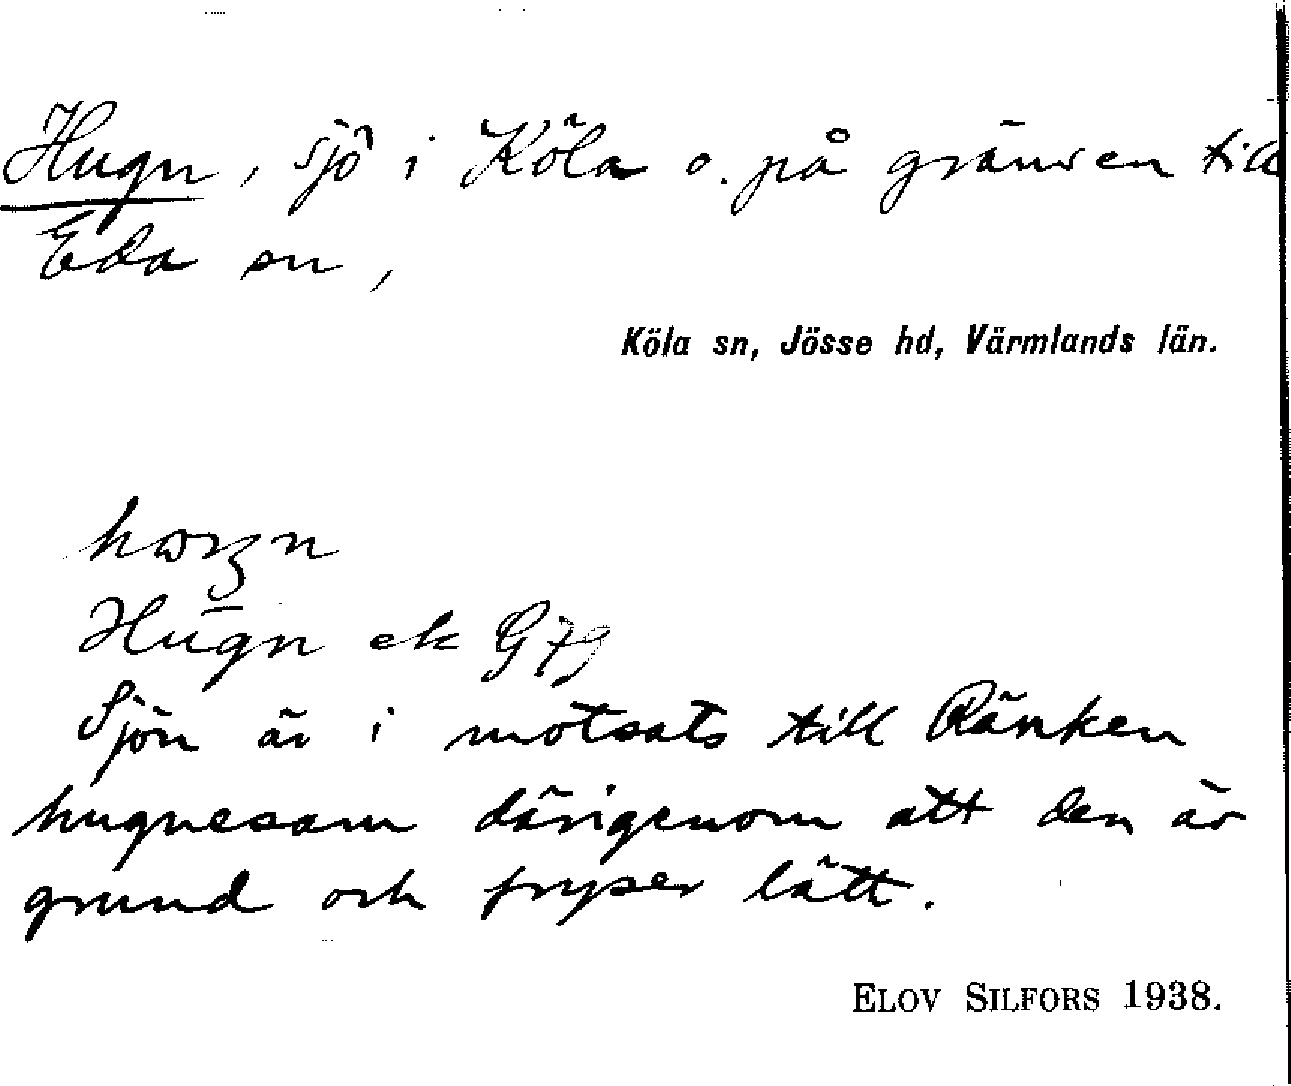 Hugn, sjö i Köla o. på gränsen till
Eda sn,
Köla sn, Jösse hd, Värmlands län.
Hugn ek G
Sjön är i motsats till Ränken
hugnesam därigenom att den är
grund och fryser lätt.
ELOV SILFORS 1938.